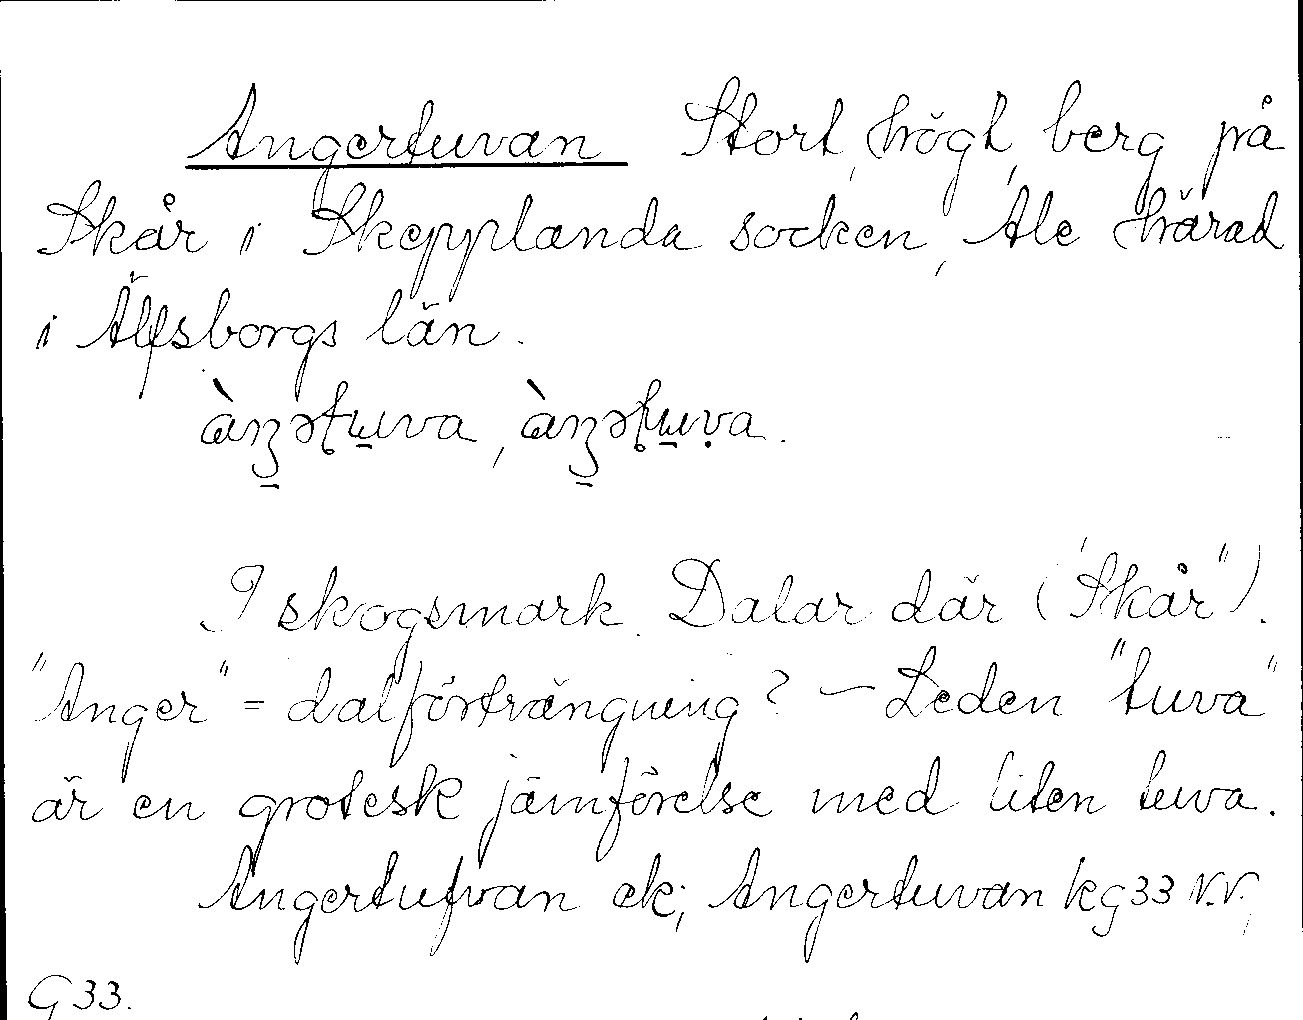 Angertuvan Stort, högt, berg på
Skår i Skepplanda socken, Ale härad
i Älfsborgs län.
I skogsmark. Dalar där ("Skår").
"Anger" = dalförträngning? – Leden "tuva"
är en grotesk jämförelse med liten tuva.
Angertufvan ek; Angertuvan kg33 N.V.,
G33.